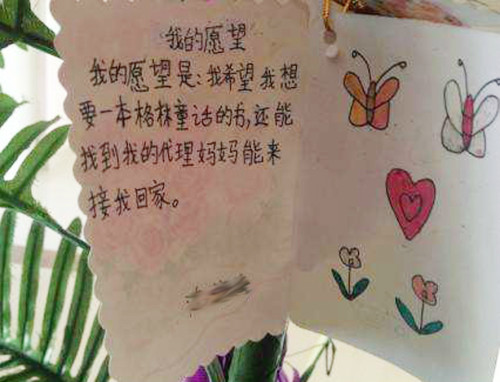 我的愿望
我的愿望是:我希望我想
要一本格林童话的书,还能
找到我的代理妈妈能来
接我回家。